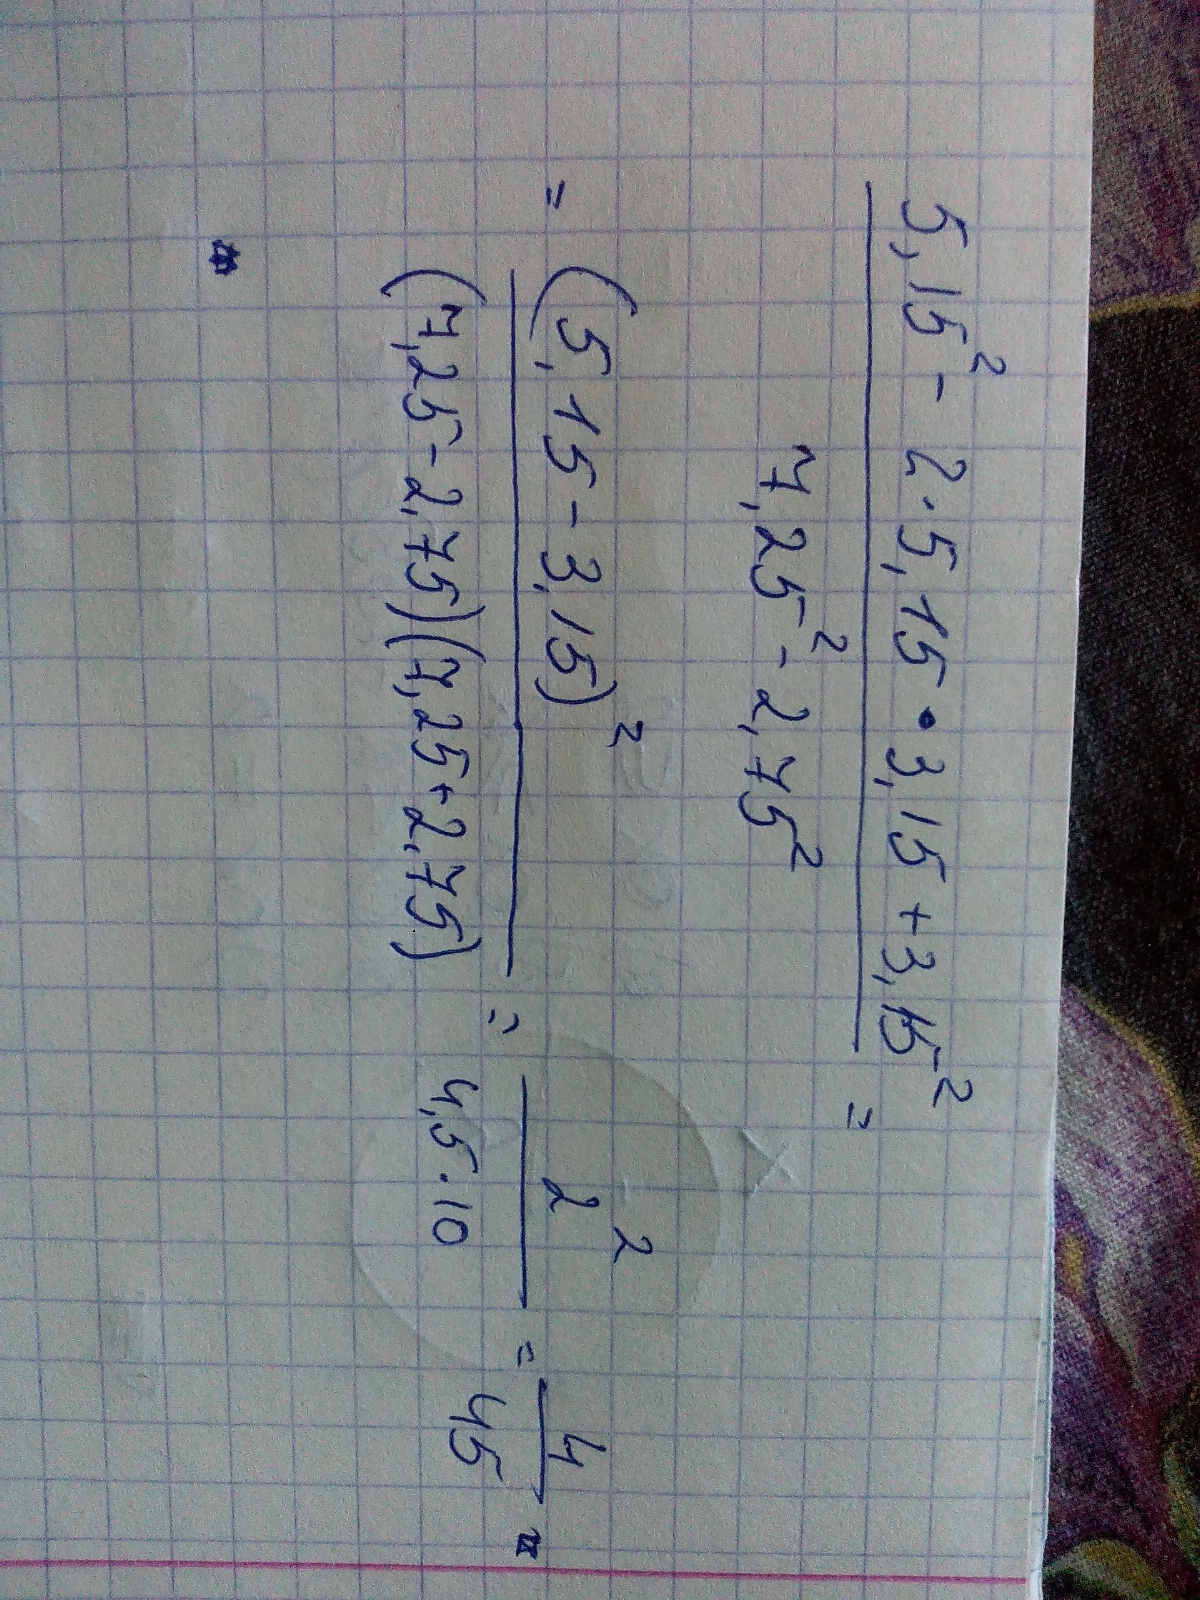 5,15² - 2·5,15·3,15+3,15²
=
7,25² - 2,75²
= (5,15-3,15)² / (7,25-2,75)(7,25+2,75) = 2² / 4,5·10 = 4/45